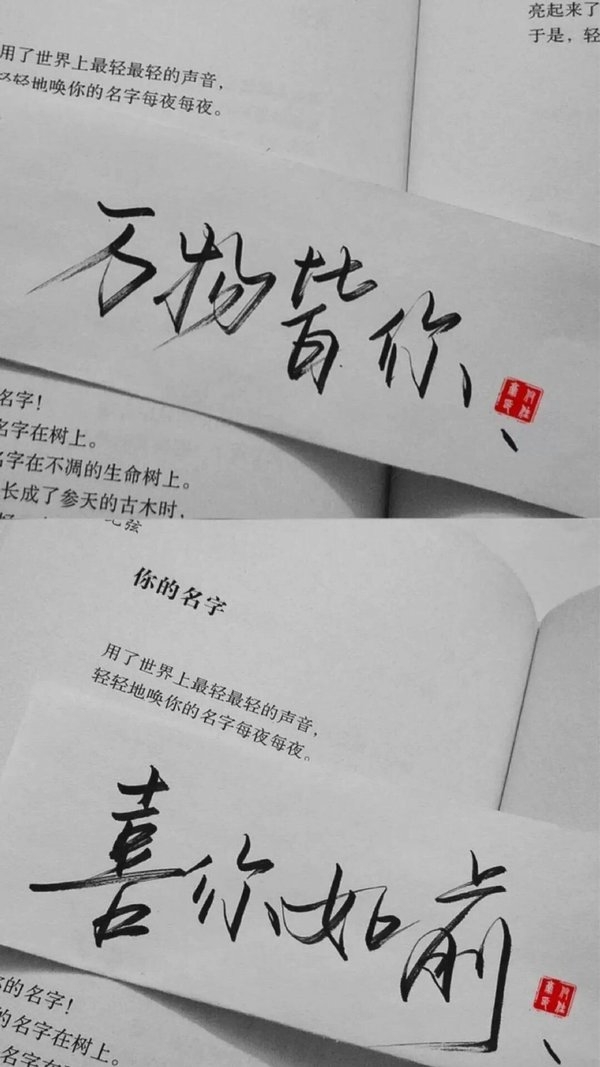 亮起来了
于是，轻
用了世界上最轻最轻的声音，
轻轻地唤你的名字每夜每夜。
万物皆你、、
名字！
名字在树上。
名字在不凋的生命树上。
长成了参天的古木时，
你的名字
用了世界上最轻最轻的声音，
轻轻地唤你的名字每夜每夜。
喜你如前、
你的名字！
的名字在树上。
名字在不凋的生命树上。